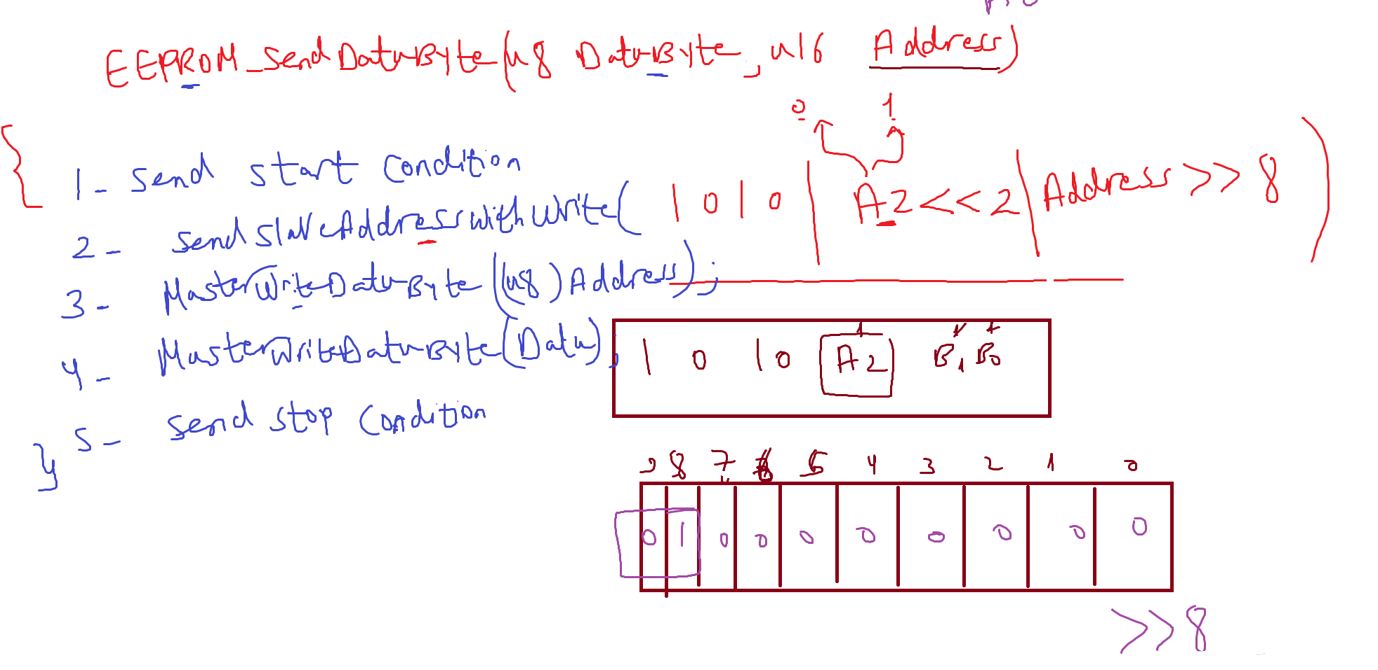 EEPROM_SendDataByte(u8 DataByte, u16 Address)
0 1
{
1- Send start Condition
2- SendSlaveAddressWithWrite( 1 0 1 0 | A2<<2 | Address >> 8 )
3- MasterWriteDataByte((u8)Address);
4- MasterWriteDataByte(Data);
1 0 1 0 A2 B1 B0
5- Send stop Condition
}
9 8 7 6 5 4 3 2 1 0
0 1 0 0 0 0 0 0 0 0
>>8